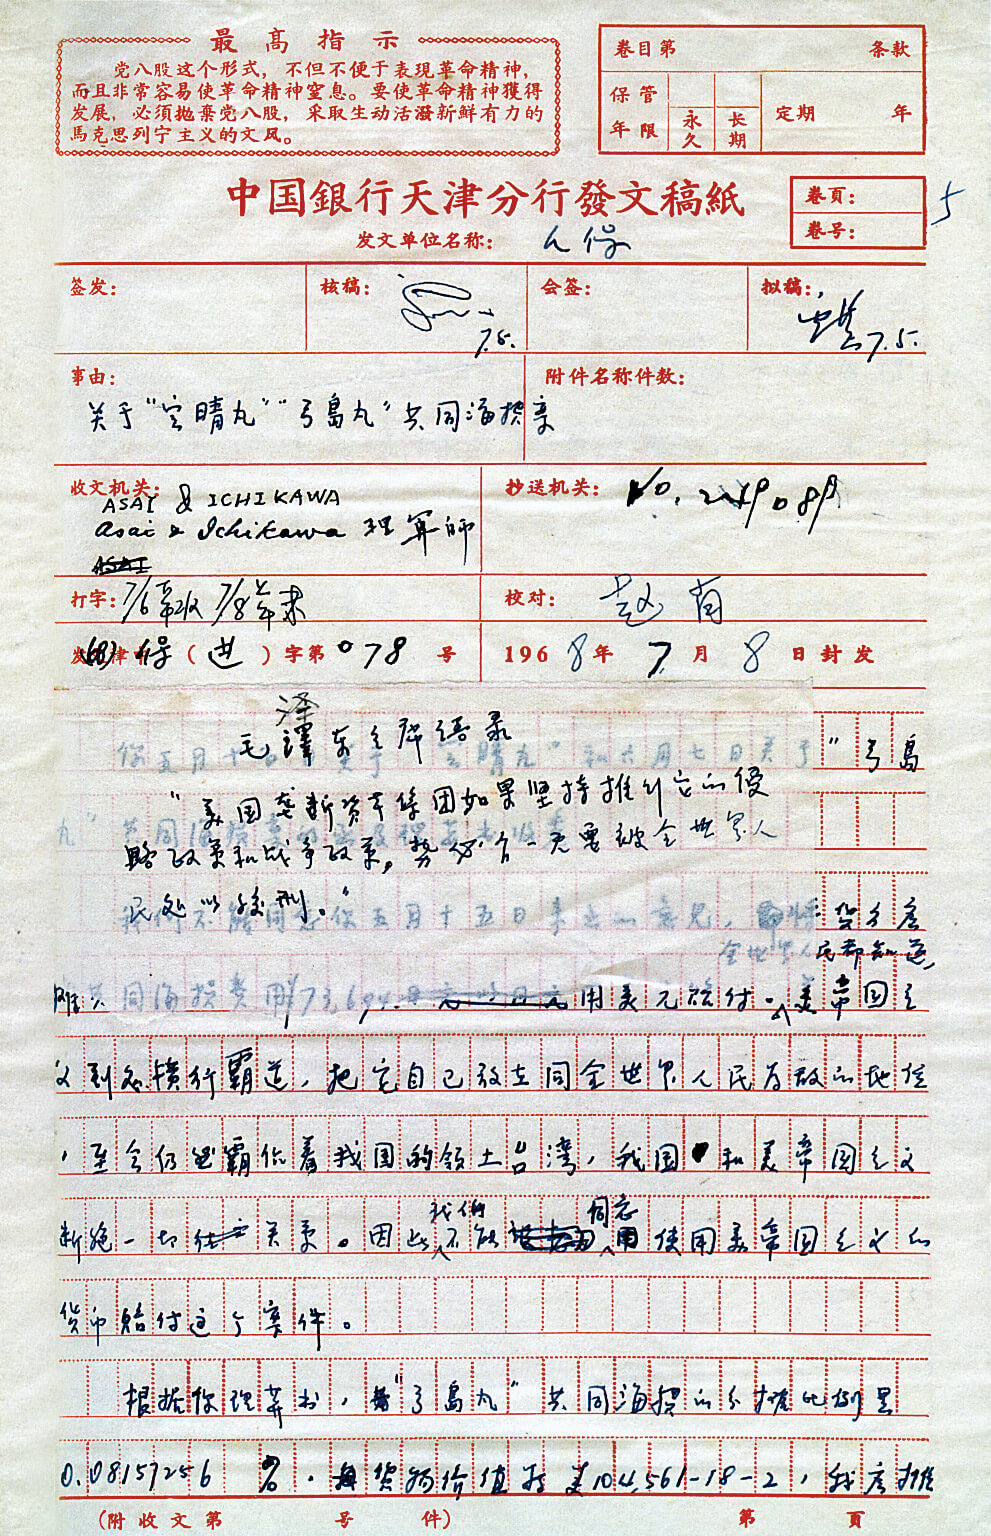 最高指示
党八股这个形式，不但不便于表现革命精神，
而且非常容易使革命精神窒息。要使革命精神獲得
发展，必须抛棄党八股，采取生动活潑新鮮有力的
馬克思列宁主义的文风。
卷目第 条款
保管年限 永久 长期 定期 年
中国銀行天津分行發文稿紙
卷頁：
卷号：
5
发文单位名称： 人保
签发： 核稿： 会签： 拟稿：
7.5. 7.5.
事由： 附件名称件数：
关于“空晴丸”“弓島丸”共同海损案
收文机关： 抄送机关：
ASAI & ICHIKAWA
Asai & Ichikawa 理算師
ASAI
打字： 7/6 7/8 校对： 赵
(68) 保（进）字第078号 1968年7月8日封发
毛澤东主席语录
“美国垄断资本集团如果坚持推行它的侵
略政策和战争政策，势必有一天要被全世界人
民处以绞刑。”
你五月十 日关于“空晴丸”和六月七日关于“弓島
丸”共同海损案
我们不能同意你五月十五日来函的意见， 将 货方应
全世界人民都知道，
摊共同海损费用 173,694 用美元赔付。美帝国主
义到处横行霸道，把它自己放在同全世界人民为敌的地位
，至今仍然霸佔着我国的领土台湾，我国和美帝国主义
断绝一切 关系。因此我们不能同意使用美帝国主义的
货币赔付这个案件。
根据你理算书，“弓島丸”共同海损的分摊比例是
0.08157256 %．每货物价值为 美104,561-18-2，我应摊
（附收文第 号 件） 第 頁